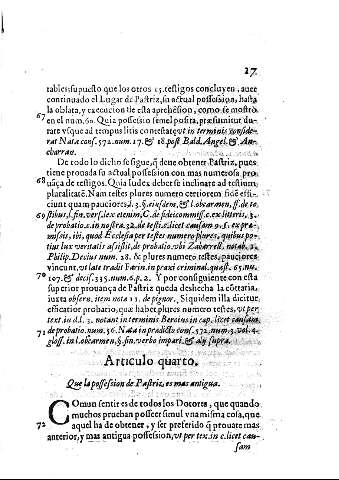 17
tables: supuesto que los otros 15. testigos concluyen, auer
continuado el Lugar de Pastriz, su actual possession, hasta
la oblata, y execucion de esta aprehesion, como se mostrò
67 en el num. 60. Quia possessio semel posita, præsumitur du-
rare vsque ad tempus litis contestatæ, vt in terminis conside-
rat Nata cons. 572. num. 17. & 18. post Bald. Angel. & An-
charran.
De todo lo dicho se sigue, q̃ deue obtener Pastriz, pues
tiene prouada su actual possession con mas numerosa pro-
68 uãça de testigos. Quia Iudex debet se inclinare ad testium
pluralitatẽ. Nam testes plures numero certiorem fidẽ effi-
ciunt quam pauciores, l. 3. §. eiusdem, & l. obcarmen, ff. de te-
69 stibus, l. fin. vers. lex etenim, C. de fideicommiss. c. ex litteris, 3.
de probatio. c. in nostra, 32. de testi. c. licet causam 9. 5. ex pra-
missis, ibi, quod Ecclesia per testes numero plures, quibus po-
tius lux veritatis assistit, de probatio. vbi Zabarrell. notab. 3.
Philip. Decius num. 28. & plures numero testes, pauciores
vincunt, vt late tradit Farin. in praxi criminal. quæst. 65. nu.
70 107. & decis. 335. num. 6. p. 2. Y por consiguiente con esta
superior prouança de Pastriz queda deshecha la cõtraria,
iuxta obseru. item nota 11. de pignor. Siquidem illa dicitur,
efficatior probatio, quæ habet plures numero testes, vt per
text. in d. l. 3. notant in terminis Beroius in cap. licet causam,
71 de probatio. num. 56. Nata in prædicto cons. 572. num. 3. vol. 4.
gloss. in l. obcarmen, §. fin. verbo impari. & alij supra.
Articulo quarto.
Que la possession de Pastriz, es mas antigua.
Comun sentir es de todos los Dotores, que quando
muchos prueban posseer simul vna misma cosa, que
72 aquel ha de obtener, y ser preferido q̃ prouare mas
anterior, y mas antigua possession, vt per tex. in c. licet cau-
sam